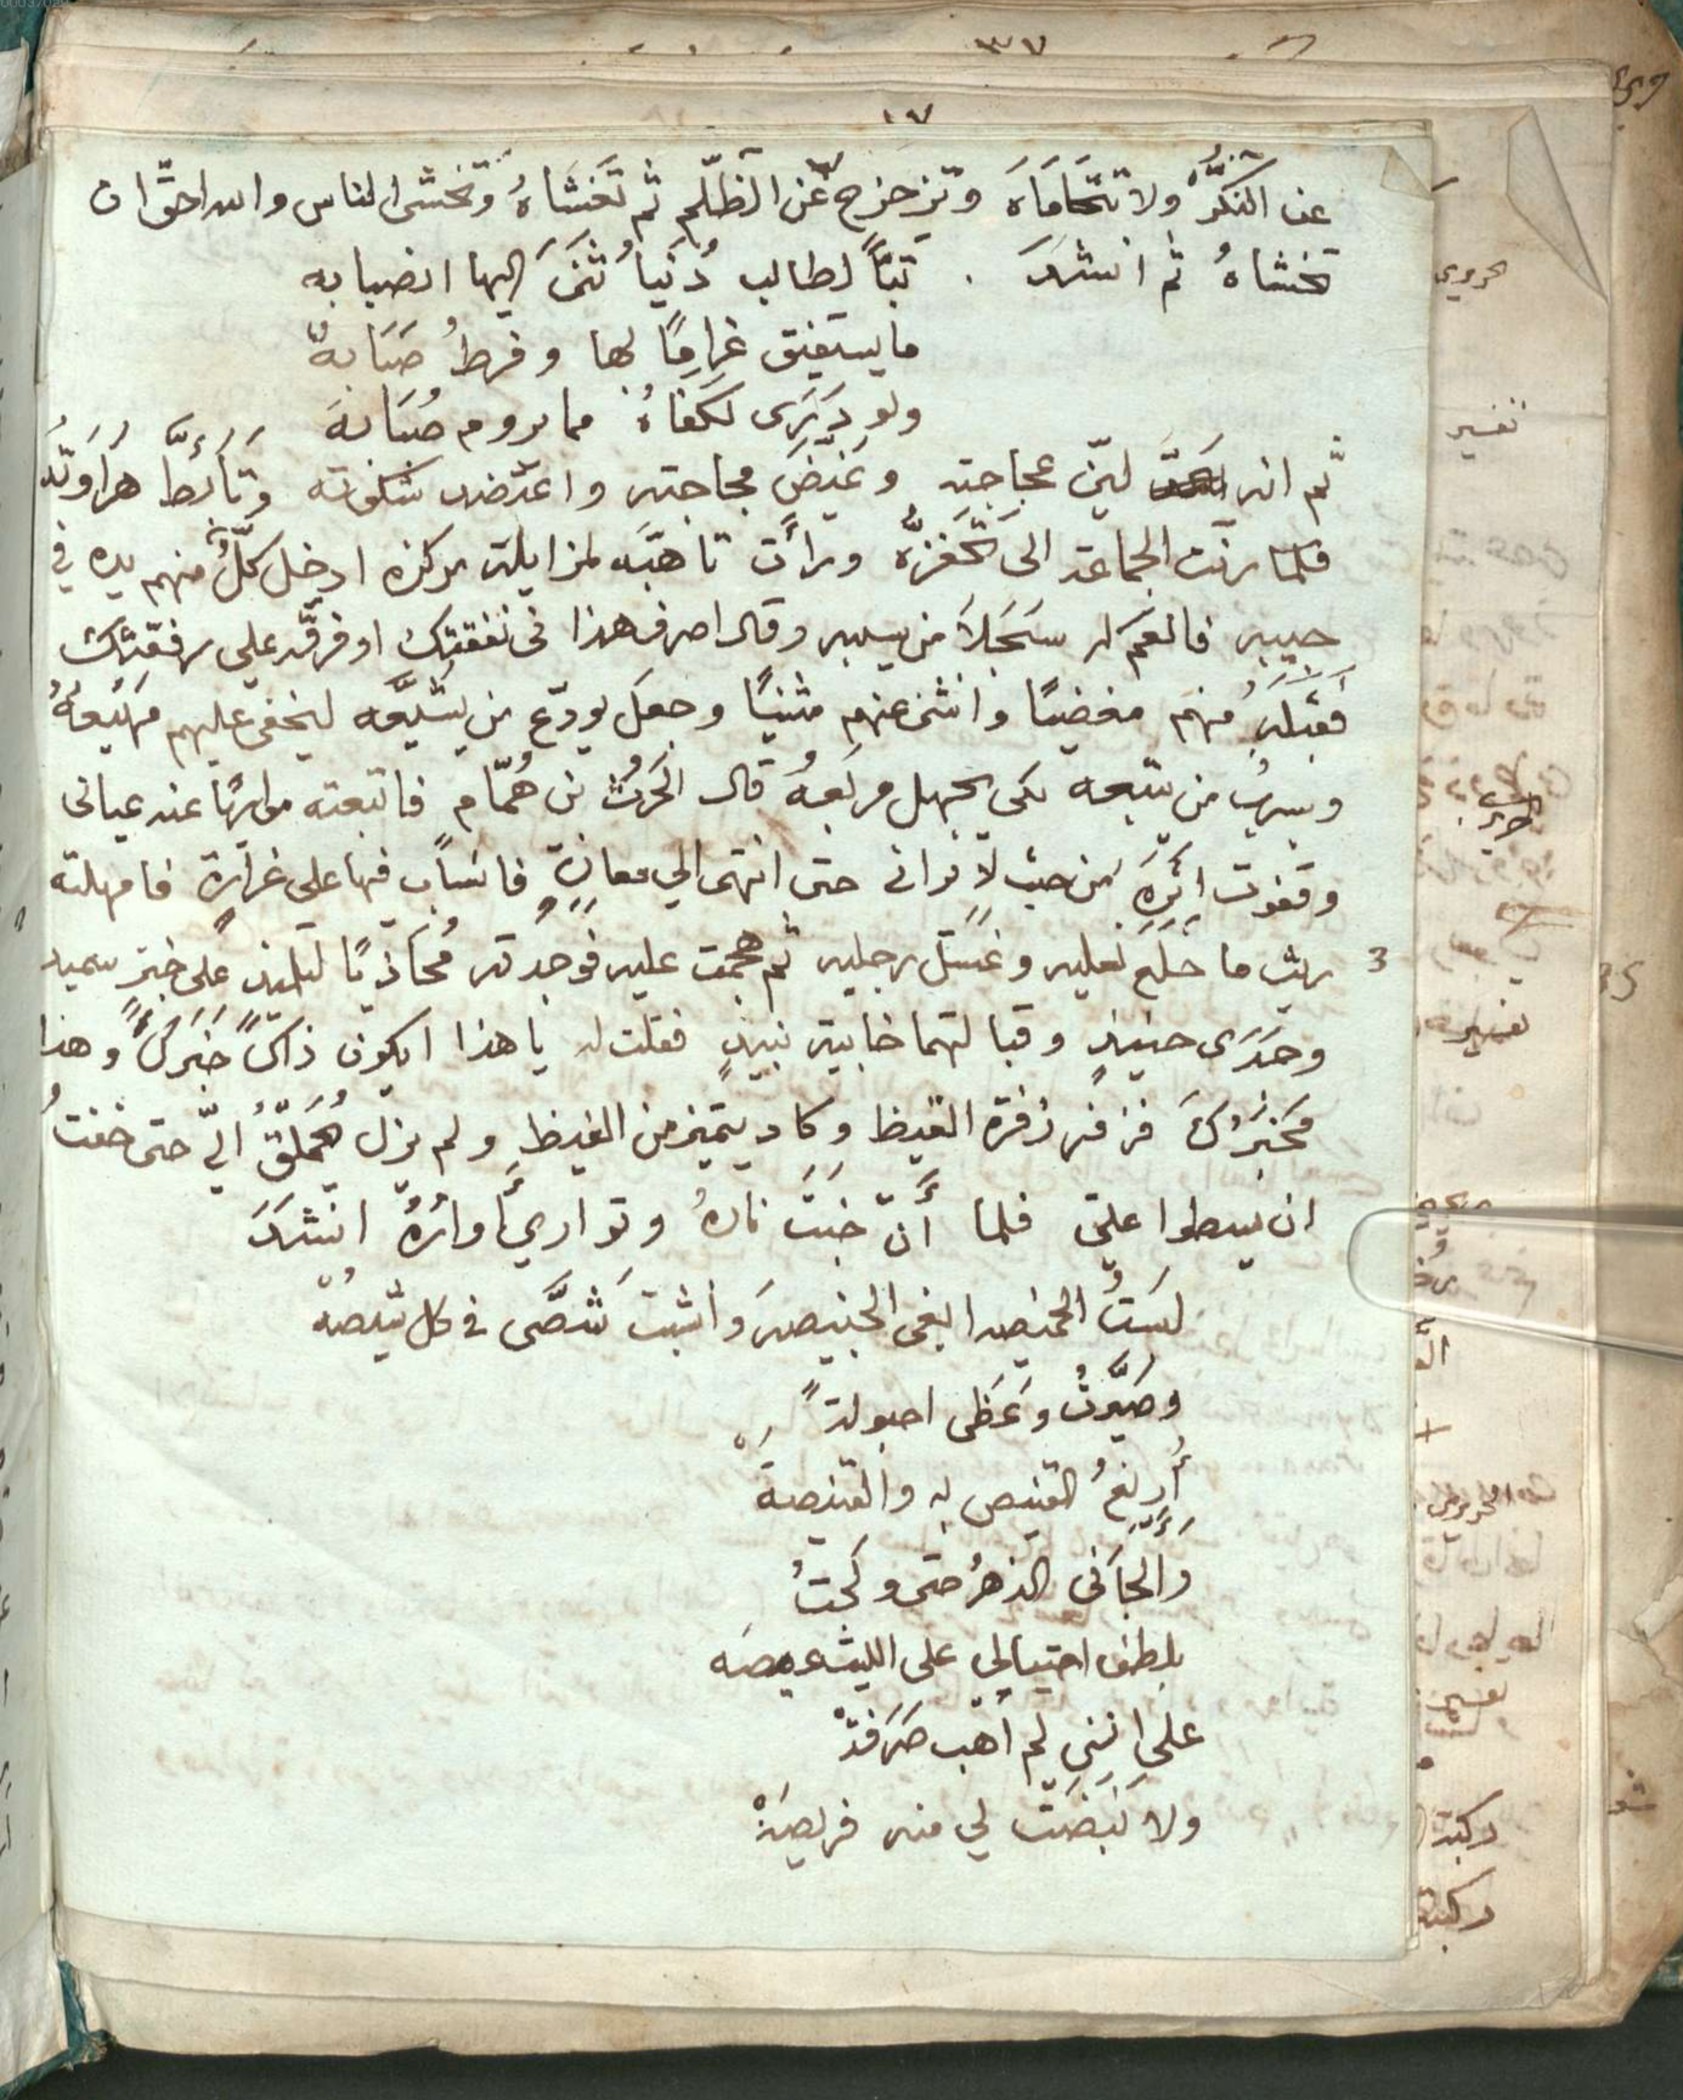 ٣٧
١٧
عن النكر ولا تتحاماه وتزحزح عن الظلم ثم تغشاه وتخشى الناس والله احق ان
تخشاه ثم انشد . تبًا لطالب دنيا ثنى اليها انصبابه
ما يستفيق غرامًا بها وفرط صبابه
ولو درى لكفاه مما يروم صبابه
ثم انه لبّن عجاجته وغيّض مجاجته واعتضد شكوته وتأبّط هراوته
فلما رنت الجماعة الى تحفزه ورأت تاهبه لمزايلة مركزه ادخل كلٌّ منهم يده في
جيبه فافعم له سجلا من سيبه وقال اصرف هذا في نفقتك او فرّقه على رفقتك
فقبله منهم مغضيًا وانثنى عنهم مثنيًا وجعل يودّع من يشيّعه ليخفى عليهم مهيعه
ويسرب من يتبعه لكي يجهل مربعه قال الحرث بن همّام فاتبعته مواريًا عنه عياني
وقفوت اثره من حيث لا يراني حتى انتهى الي مغارةٍ فانساب فيها على غرارةٍ فامهلته
3 ريث ما خلع نعليه وغسل رجليه ثم هجمت عليه فوجدته محاذيًا لتلميذ على خبز سميد
وجدى حنيذٍ وقبالتهما خابية نبيذٍ فقلت له يا هذا ايكون ذاك خبرك وهذا
مخبرك فزفر زفرة القيظ وكاد يتميز من الغيظ ولم يزل يحملق اليّ حتى خفت
ان يسطوا عليّ فلما أن خبت ناره وتوارى أواره انشد
لبست الخميصه ابغى الخبيصه وأنشبت شصّى في كل شيصه
وصيّرت وعظى احبولةً
أريغ القنيص به والقنيصة
والجاني الدهر حتى ولجت
بلطف احتيالي على الليث عيصه
على انني لم اهب صرفه
ولا نبضت لي منه فريصة
حريري
تفسير
تفسير
الحريري
تفسير
ركبة
ركبة